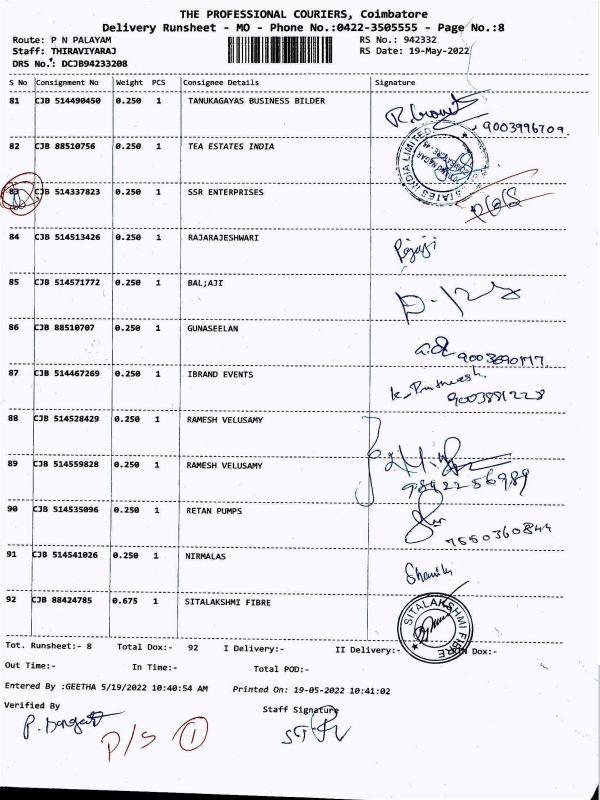 THE PROFESSIONAL COURIERS, Coimbatore
Delivery Runsheet - MO - Phone No.:0422-3505555 - Page No.:8
Route: P N PALAYAM RS No.: 942332
Staff: THIRAVIYARAJ RS Date: 19-May-2022
DRS No.: DCJB94233208
S No Consignment No Weight PCS Consignee Details Signature
81 CJB 514490450 0.250 1 TANUKAGAYAS BUSINESS BILDER
9003996709.
82 CJB 88510756 0.250 1 TEA ESTATES INDIA
83 CJB 514337823 0.250 1 SSR ENTERPRISES
84 CJB 514513426 0.250 1 RAJARAJESHWARI
85 CJB 514571772 0.250 1 BAL;AJI
86 CJB 88510707 0.250 1 GUNASEELAN
87 CJB 514467269 0.250 1 IBRAND EVENTS
9003881228
88 CJB 514528429 0.250 1 RAMESH VELUSAMY
89 CJB 514559828 0.250 1 RAMESH VELUSAMY
90 CJB 514535096 0.250 1 RETAN PUMPS
7550360844
91 CJB 514541026 0.250 1 NIRMALAS
92 CJB 88424785 0.675 1 SITALAKSHMI FIBRE
SITALAKSHMI FIBRE
Tot. Runsheet:- 8 Total Dox:- 92 I Delivery:- II Delivery:- Dox:-
Out Time:- In Time:- Total POD:-
Entered By :GEETHA 5/19/2022 10:40:54 AM Printed On: 19-05-2022 10:41:02
Verified By Staff Signature
P/S 1